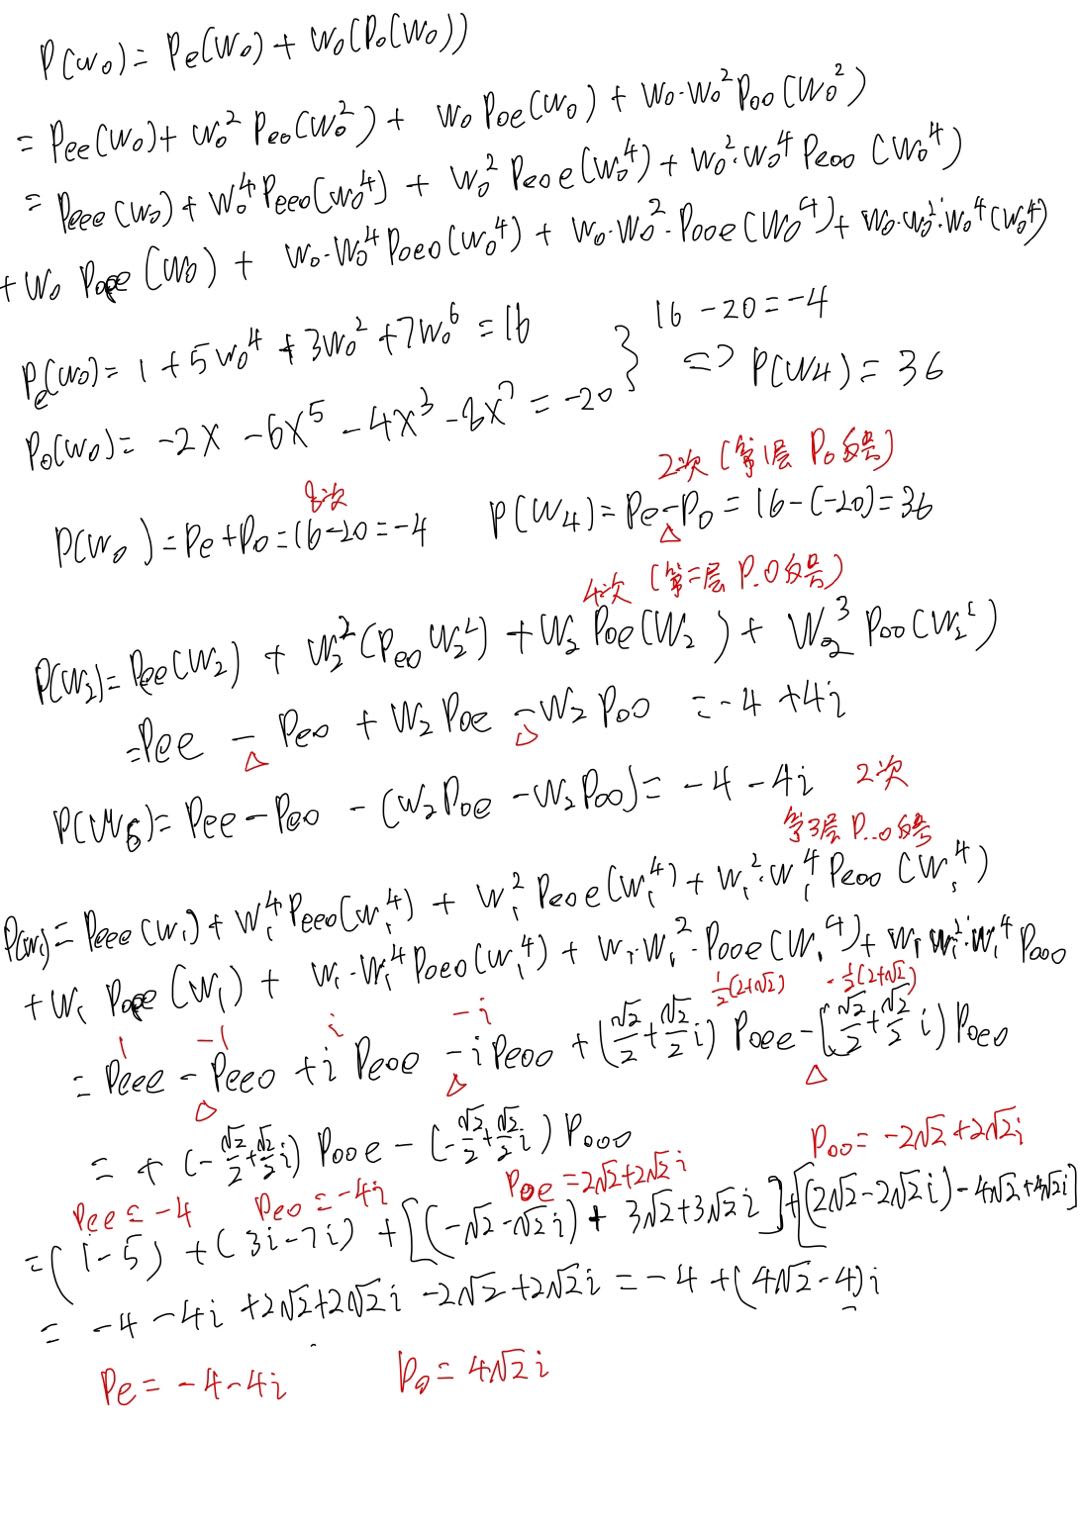 P(w₀) = Pe(w₀) + w₀(Po(w₀))
= Pee(w₀) + w₀² Peo(w₀²) + w₀ Poe(w₀) + w₀·w₀² Poo(w₀²)
= Peee(w₀) + w₀⁴ Peeo(w₀⁴) + w₀² Peoe(w₀⁴) + w₀²·w₀⁴ Peoo(w₀⁴)
+ w₀ Poee(w₀) + w₀·w₀⁴ Poeo(w₀⁴) + w₀·w₀²·Pooe(w₀⁴) + w₀·w₀²·w₀⁴(w₀⁴)
Pe(w₀) = 1 + 5w₀⁴ + 3w₀² + 7w₀⁶ = 16
} 16 - 20 = -4
=> P(w4) = 36
Po(w₀) = -2x - 6x⁵ - 4x³ - 8x⁷ = -20
8次
2次 (第1层 Po 反号)
P(w₀) = Pe + Po = 16-20 = -4
P(w4) = Pe - Po = 16-(-20) = 36
△
4次 (第二层 P.O反号)
P(w₂) = Pee(w₂) + w₂²(Peo w₂²) + w₂ Poe(w₂) + w₂³ Poo(w₂²)
= Pee - Peo + w₂ Poe - w₂ Poo = -4 + 4i
△ △
P(w6) = Pee - Peo - (w₂Poe - w₂Poo) = -4 - 4i
2次
第3层 P..o反号
P(w₁) = Peee(w₁) + w₁⁴Peeo(w₁⁴) + w₁² Peoe(w₁⁴) + w₁²·w₁⁴ Peoo(w₁⁴)
+ w₁ Poee(w₁) + w₁·w₁⁴ Poeo(w₁⁴) + w₁·w₁²·Pooe(w₁⁴) + w₁ w₁²·w₁⁴ Pooo
1 -1 i -i ½(2+√2) -½(2+√2)
= Peee - Peeo + i Peoe - i Peoo + (√2/2 + √2/2 i) Poee - (√2/2 + √2/2 i) Poeo
△ △ △
= + (-√2/2 + √2/2 i) Pooe - (-√2/2 + √2/2 i) Pooo
Pee = -4 Peo = -4i Poe = 2√2+2√2i Poo = -2√2+2√2i
= (1-5) + (3i-7i) + [(-√2-√2i) + 3√2+3√2i] + [(2√2-2√2i) - 4√2+4√2i]
= -4 - 4i + 2√2+2√2i - 2√2+2√2i = -4 + (4√2-4)i
Pe = -4-4i Po = 4√2i